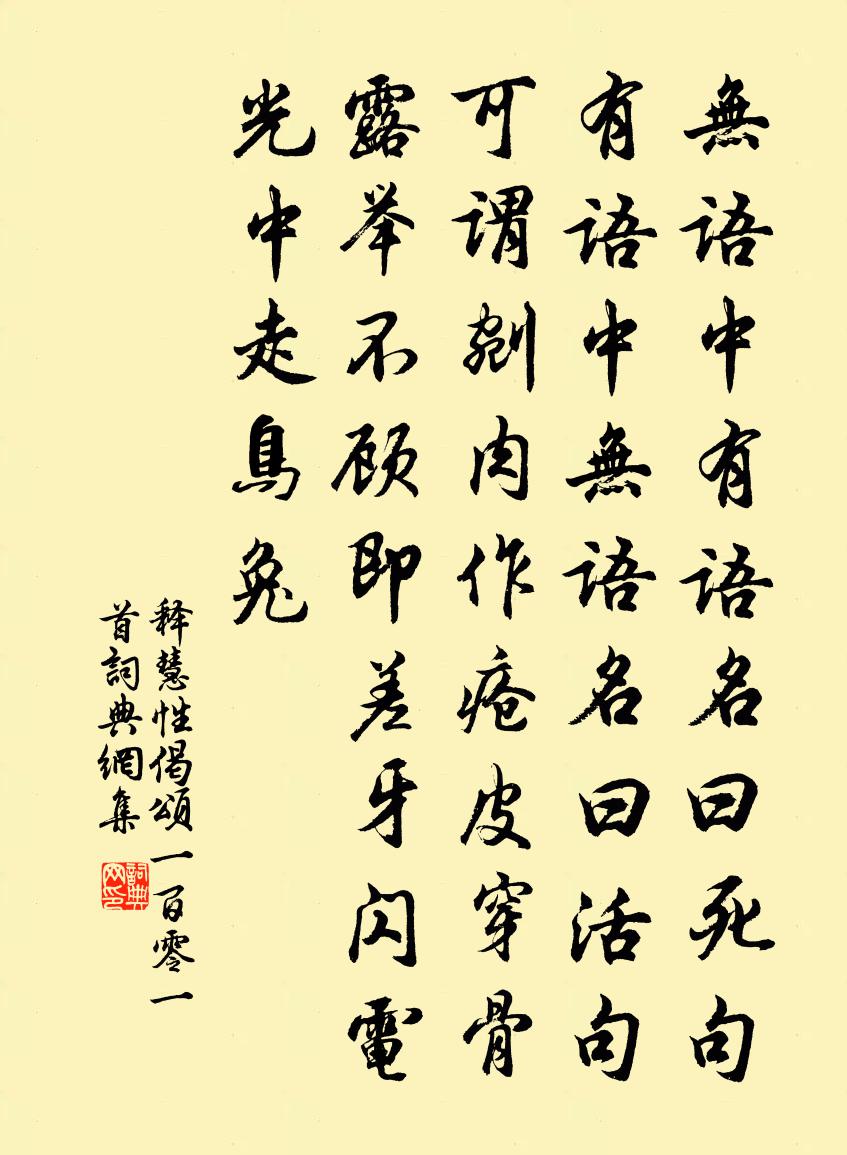 無語中有語名曰死句
有語中無語名曰活句
可謂剜肉作疮皮穿骨
露举不顾即差牙闪電
光中走鳥兔
释慧性偈頌一百零一
首詞典網集
詞典
网印